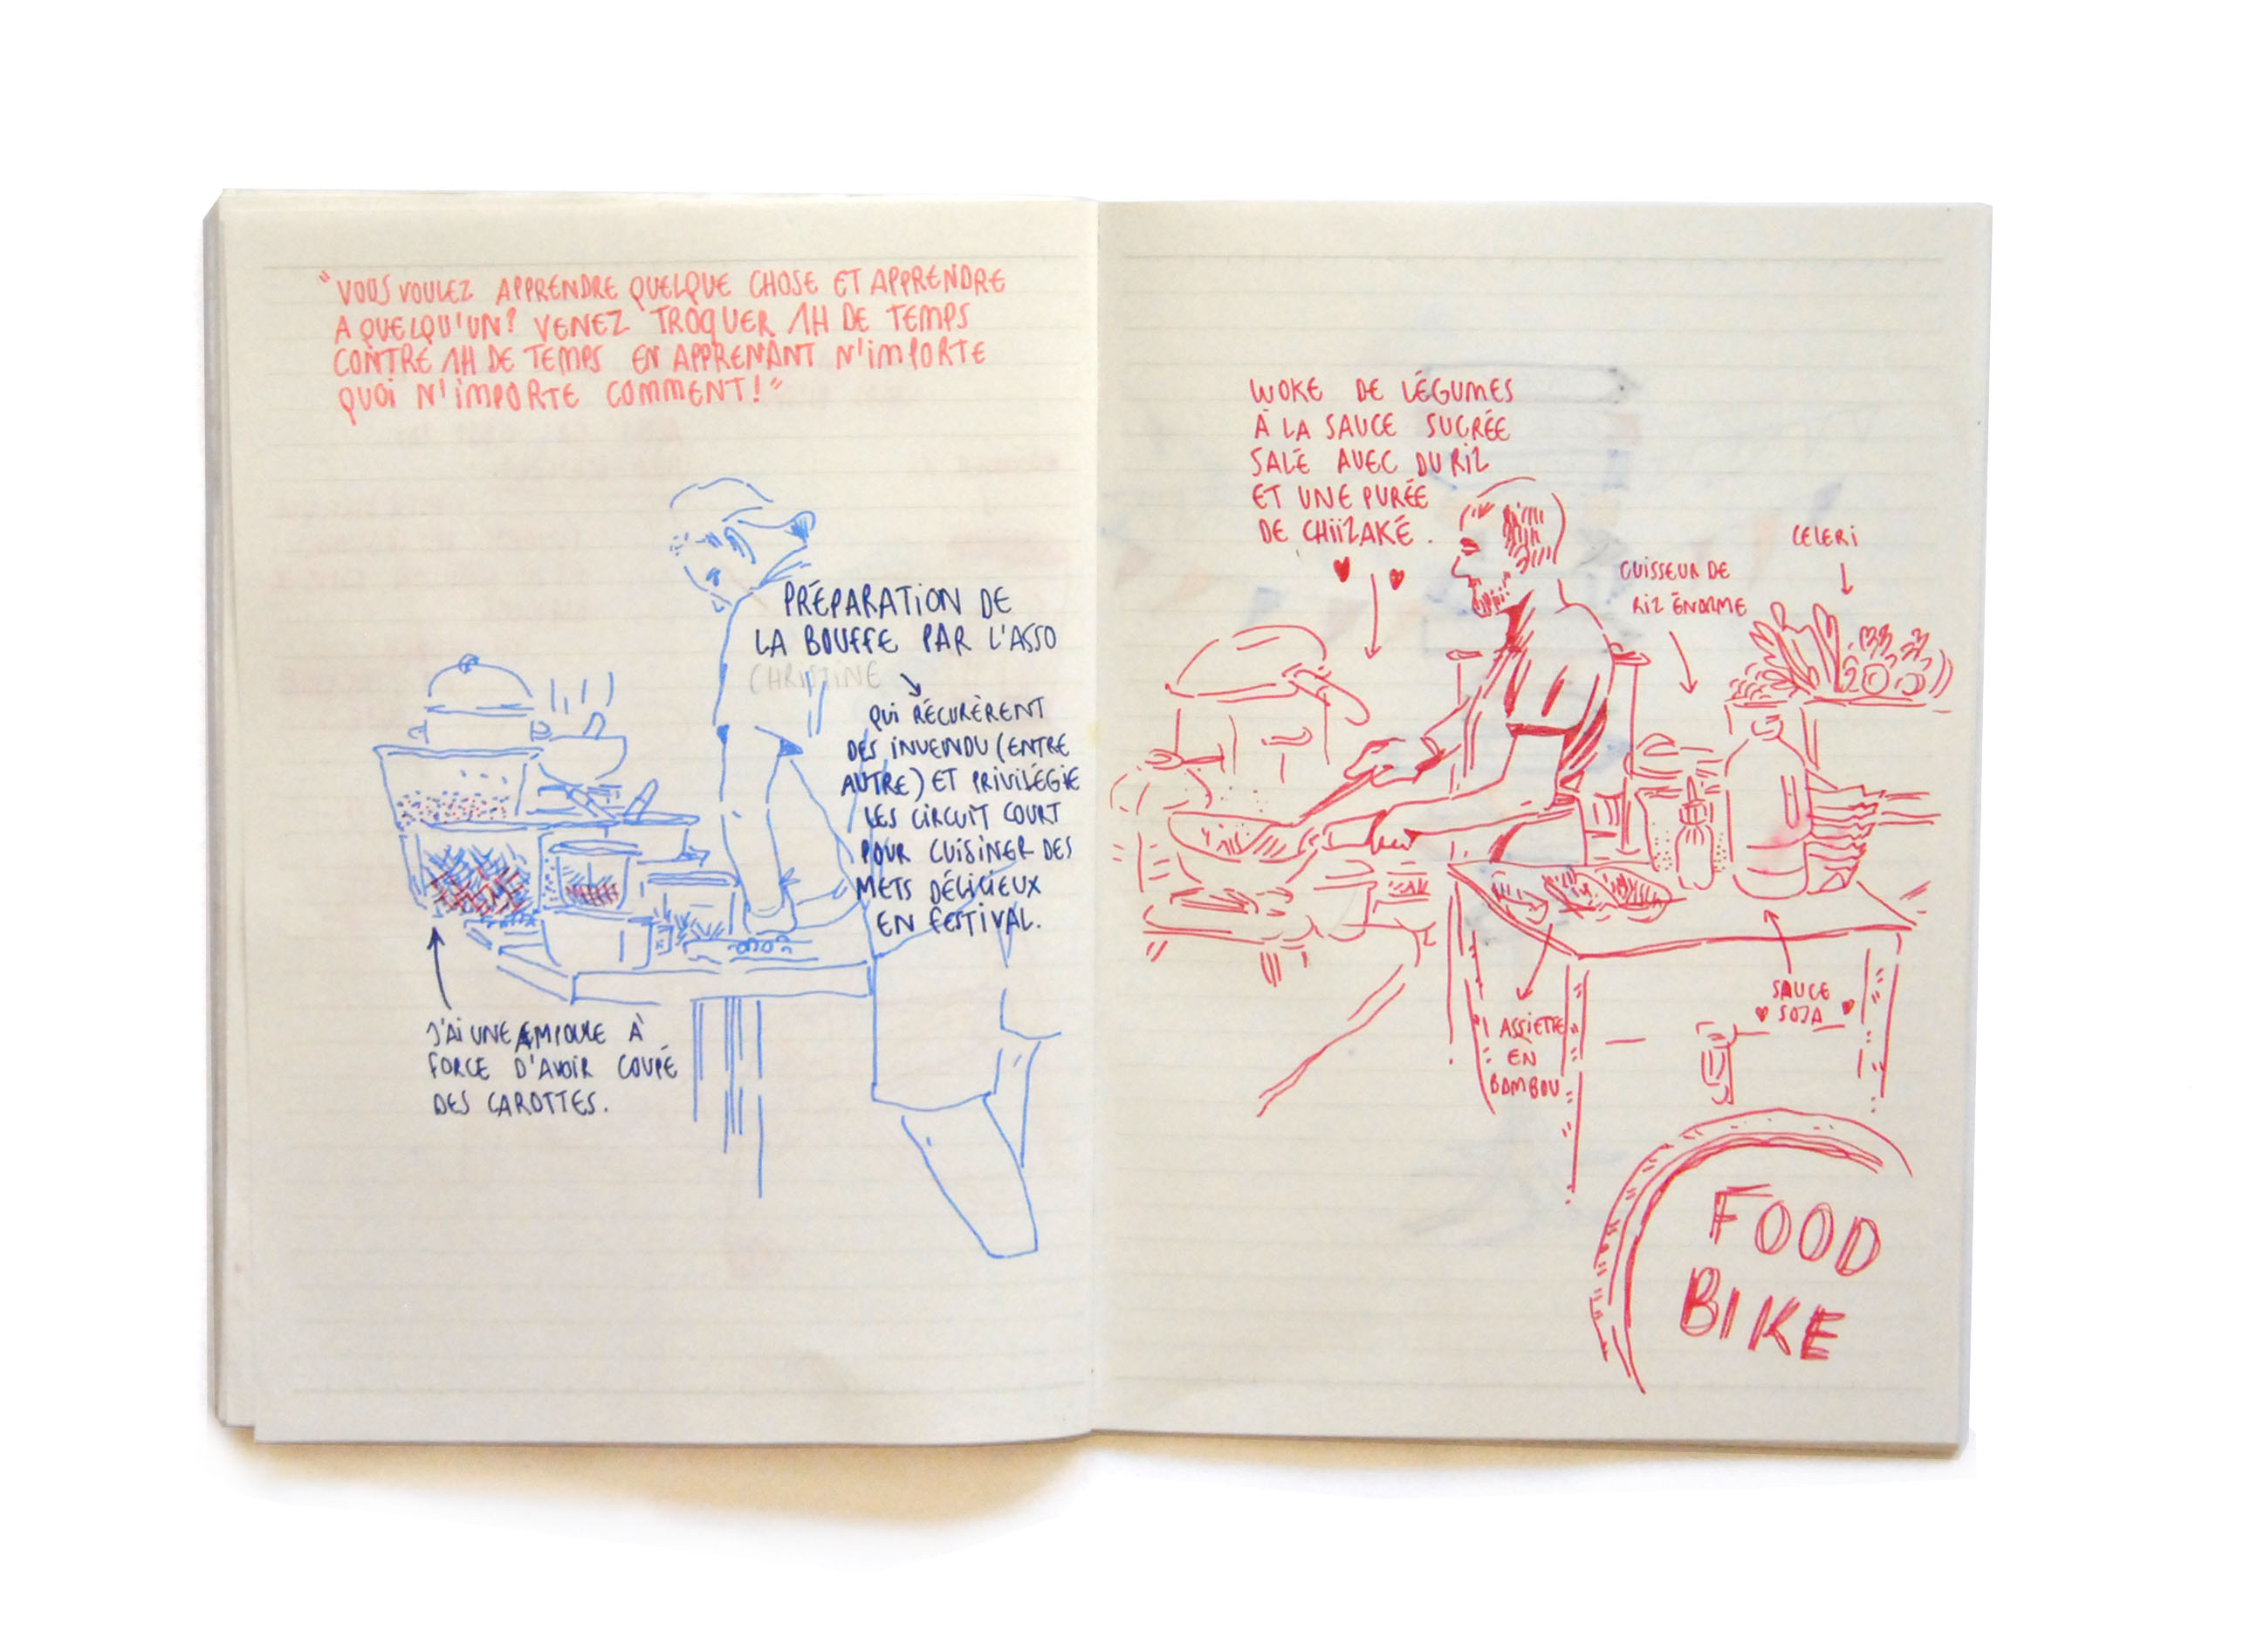 "VOUS VOULEZ APPRENDRE QUELQUE CHOSE ET APPRENDRE
A QUELQU'UN? VENEZ TROQUER 1H DE TEMPS
CONTRE 1H DE TEMPS EN APPRENANT N'IMPORTE
QUOI N'IMPORTE COMMENT!"
PRÉPARATION DE
LA BOUFFE PAR L'ASSO
CHRISTINE
QUI RÉCURÈRENT
DES INVENDU (ENTRE
AUTRE) ET PRIVILÉGIE
LES CIRCUIT COURT
POUR CUISINER DES
METS DÉLICIEUX
EN FESTIVAL.
J'AI UNE AMPOULE À
FORCE D'AVOIR COUPÉ
DES CAROTTES.
WOKE DE LÉGUMES
À LA SAUCE SUCRÉE
SALÉ AVEC DU RIZ
ET UNE PURÉE
DE CHIIZAKÉ.
CUISSEUR DE
RIZ ÉNORME
CELERI
ASSIETTE
EN
BAMBOU
SAUCE
SOJA
FOOD
BIKE